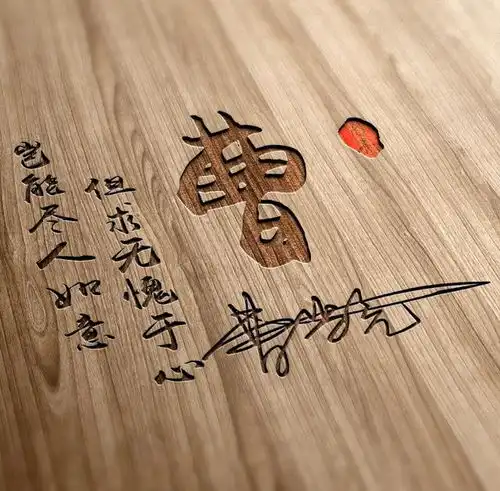 曹
岂能尽人如意
但求无愧于心